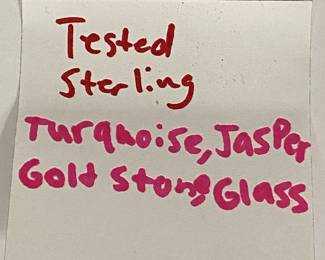 Tested
Sterling
Turquoise, Jasper
Gold Stone, Glass